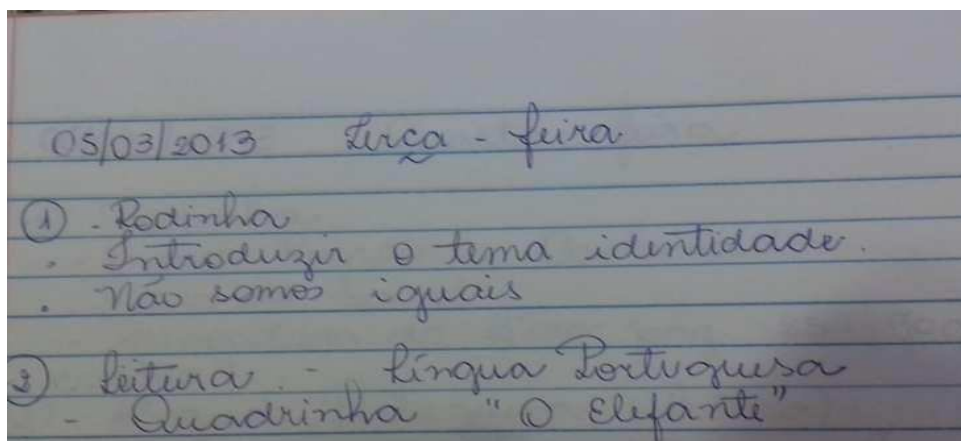 05/03/2013 terça - feira
① - Rodinha
. Introduzir o tema identidade.
. Não somos iguais
② Leitura - Língua Portuguesa
- Quadrinha "O Elefante"